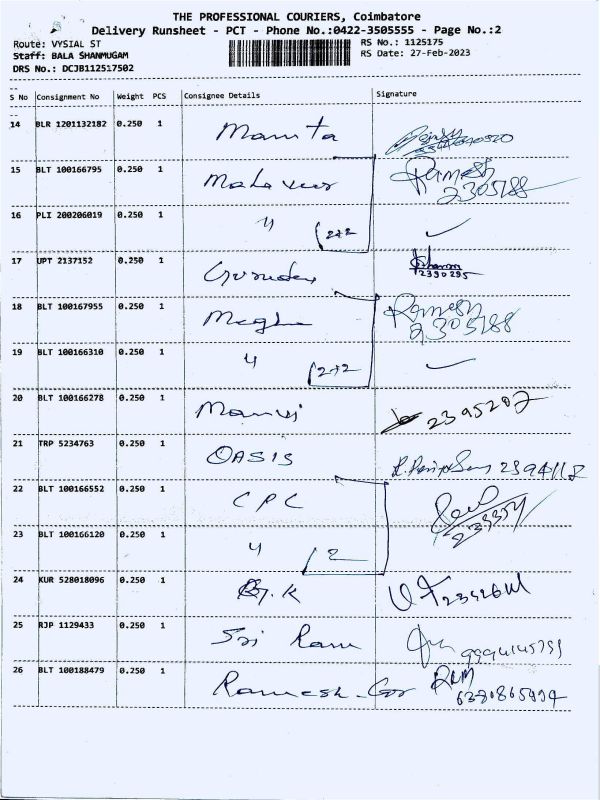 THE PROFESSIONAL COURIERS, Coimbatore
Delivery Runsheet - PCT - Phone No.:0422-3505555 - Page No.:2
Route: VYSIAL ST RS No.: 1125175
Staff: BALA SHANMUGAM RS Date: 27-Feb-2023
DRS No.: DCJB112517502
S No Consignment No Weight PCS Consignee Details Signature
14 BLR 1201132182 0.250 1 Mamta
15 BLT 100166795 0.250 1 Mahaveer Ramesh
2305188
16 PLI 200206019 0.250 1 4 2+2
17 UPT 2137152 0.250 1 Gurudev
2390295
18 BLT 100167955 0.250 1 Megha Ramesh
2305188
19 BLT 100166310 0.250 1 4 2+2
20 BLT 100166278 0.250 1 2395207
21 TRP 5234763 0.250 1 OASIS
22 BLT 100166552 0.250 1 CPC
23 BLT 100166120 0.250 1 4 2
24 KUR 528018096 0.250 1
25 RJP 1129433 0.250 1 Sri Ram
26 BLT 100188479 0.250 1 Ramesh